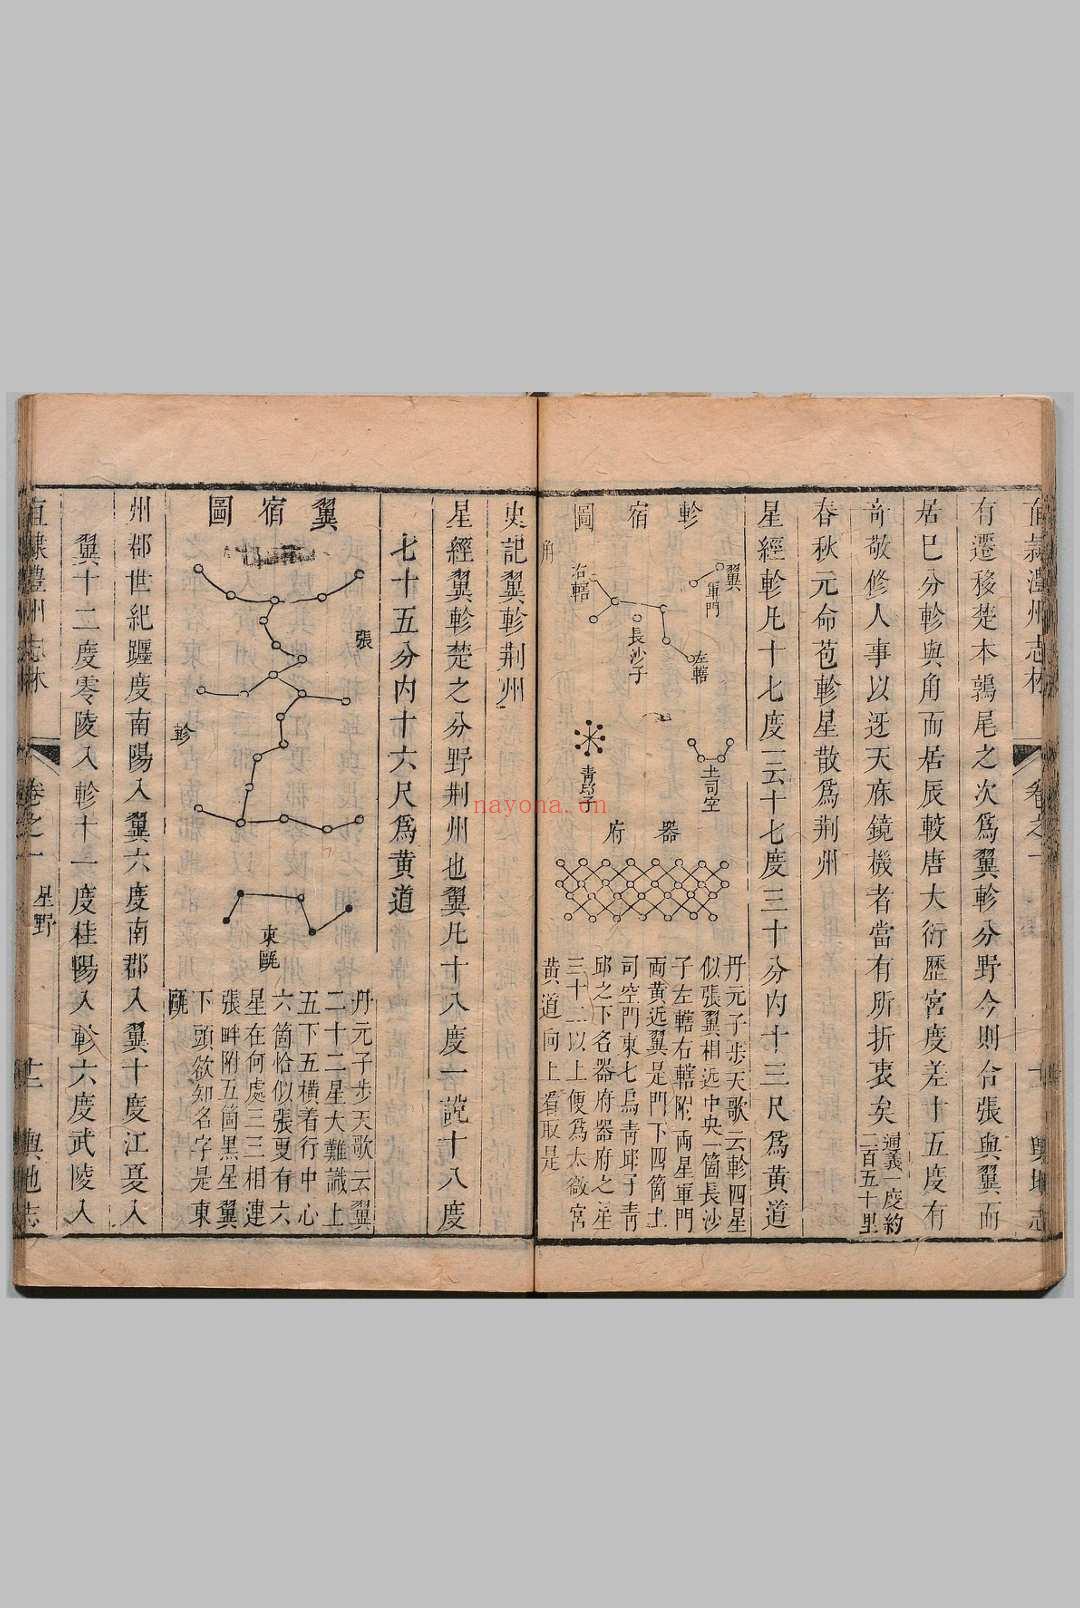 直隸澧州志林 卷之一 輿地志
有遷移楚本鶉尾之次爲翼軫分野今則合張與翼而
居巳分軫與角而居辰較唐大衍歷宮度差十五度有
奇敬修人事以迓天庥鏡機者當有所折衷矣
通義一度約
二百五十里
春秋元命苞軫星散爲荆州
星經軫凡十七度一云十七度三十分内十三尺爲黄道
軫宿圖
翼
軍門
左轄
長沙子
右轄
角
土司空
青邱子
器府
丹元子步天歌云軫四星
似張翼相近中央一箇長沙
子左轄右轄附兩星軍門
兩黄近翼是門下四箇土
司空門東七烏青邱子青
邱之下名器府器府之星
三十二以上便爲太微宮
黄道向上看取是
史記翼軫荆州
星經翼軫楚之分野荆州也翼凡十八度一說十八度
七十五分内十六尺爲黄道
翼宿圖
張
軫
東甌
丹元子步天歌云翼
二十二星大難識上
五下五横着行中心
六箇恰似張更有六
星在何處三三相連
張畔附五箇黑星翼
下頭欲知名字是東
甌
州郡世紀躔度南陽入翼六度南郡入翼十度江夏入
翼十二度零陵入軫十一度桂陽入軫六度武陵入
直隸澧州志林 卷之一 星野 十二 輿地志
nayona.cn